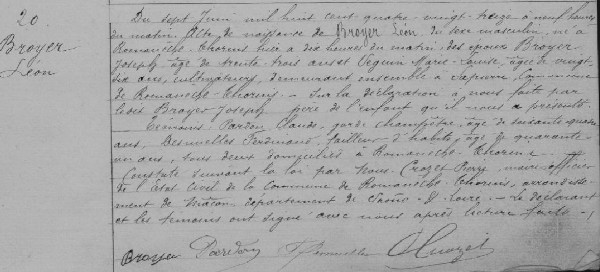 20
Broyer
Léon
Du sept Juin mil huit cent quatre-vingt-treize à neuf heures
du matin. Acte de naissance de Broyer Léon du sexe masculin, né à
Romanèche-Thorins hier à dix heures du matin, des époux Broyer
Joseph âgé de trente trois ans et Seguin Marie-Louise, âgée de vingt-
six ans, cultivateurs, demeurant ensemble à commune
de Romanèche-Thorins. - Sur la déclaration à nous faite par
ledit Broyer Joseph père de l'enfant qu'il nous a présenté.
Témoins Pardon Claude, garde champêtre, âgé de soixante-quatre
ans, Desmelles Ferdinand, tailleur d'habits, âgé de quarante
ans, tous deux domiciliés à Romanèche-Thorins
Constaté suivant la loi par Nous Crozet maire officier
de l'Etat Civil de la Commune de Romanèche-Thorins, arrondisse-
ment de Mâcon, département de Saône-&-Loire. - Le déclarant
et les témoins ont signé avec nous après lecture faite. -
Broyer Pardon Crozet